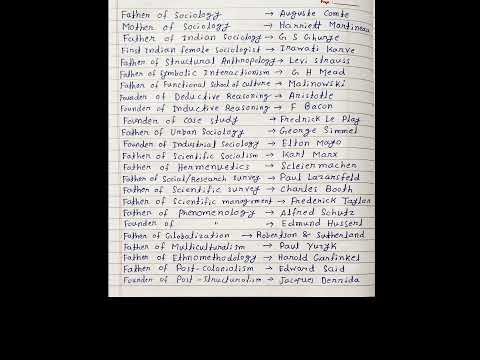 Page
Father of Sociology → Auguste Comte
Mother of Sociology → Harriett Martineau
Father of Indian Sociology → G S Ghurye
First Indian female Sociologist → Irawati Karve
Father of Structural Anthropology → Levi strauss
Father of Symbolic Interactionism → G H Mead
Father of Functional School of Culture → Malinowski
Founder of Deductive Reasoning → Aristotle
Founder of Inductive Reasoning → F Bacon
Founder of case study → Fredrick Le Play
Father of Urban Sociology → George Simmel
Founder of Industrial Sociology → Elton Mayo
Father of Scientific Socialism → Karl Marx
Father of Hermenuetics → Scleiermachen
Father of Social/Research survey → Paul Lazarsfeld
Father of Scientific survey → Charles Booth
Father of Scientific management → Frederick Taylor
Father of Phenomenology → Alfred Schutz
Founder of " → Edmund Husserl
Father of Globalization → Robertson & Sutherland
Father of Multiculturalism → Paul Yuzyk
Father of Ethnomethodology → Harold Garfinkel
Father of Post-colonialism → Edward Said
Founder of Post-Structuralism → Jacques Derrida